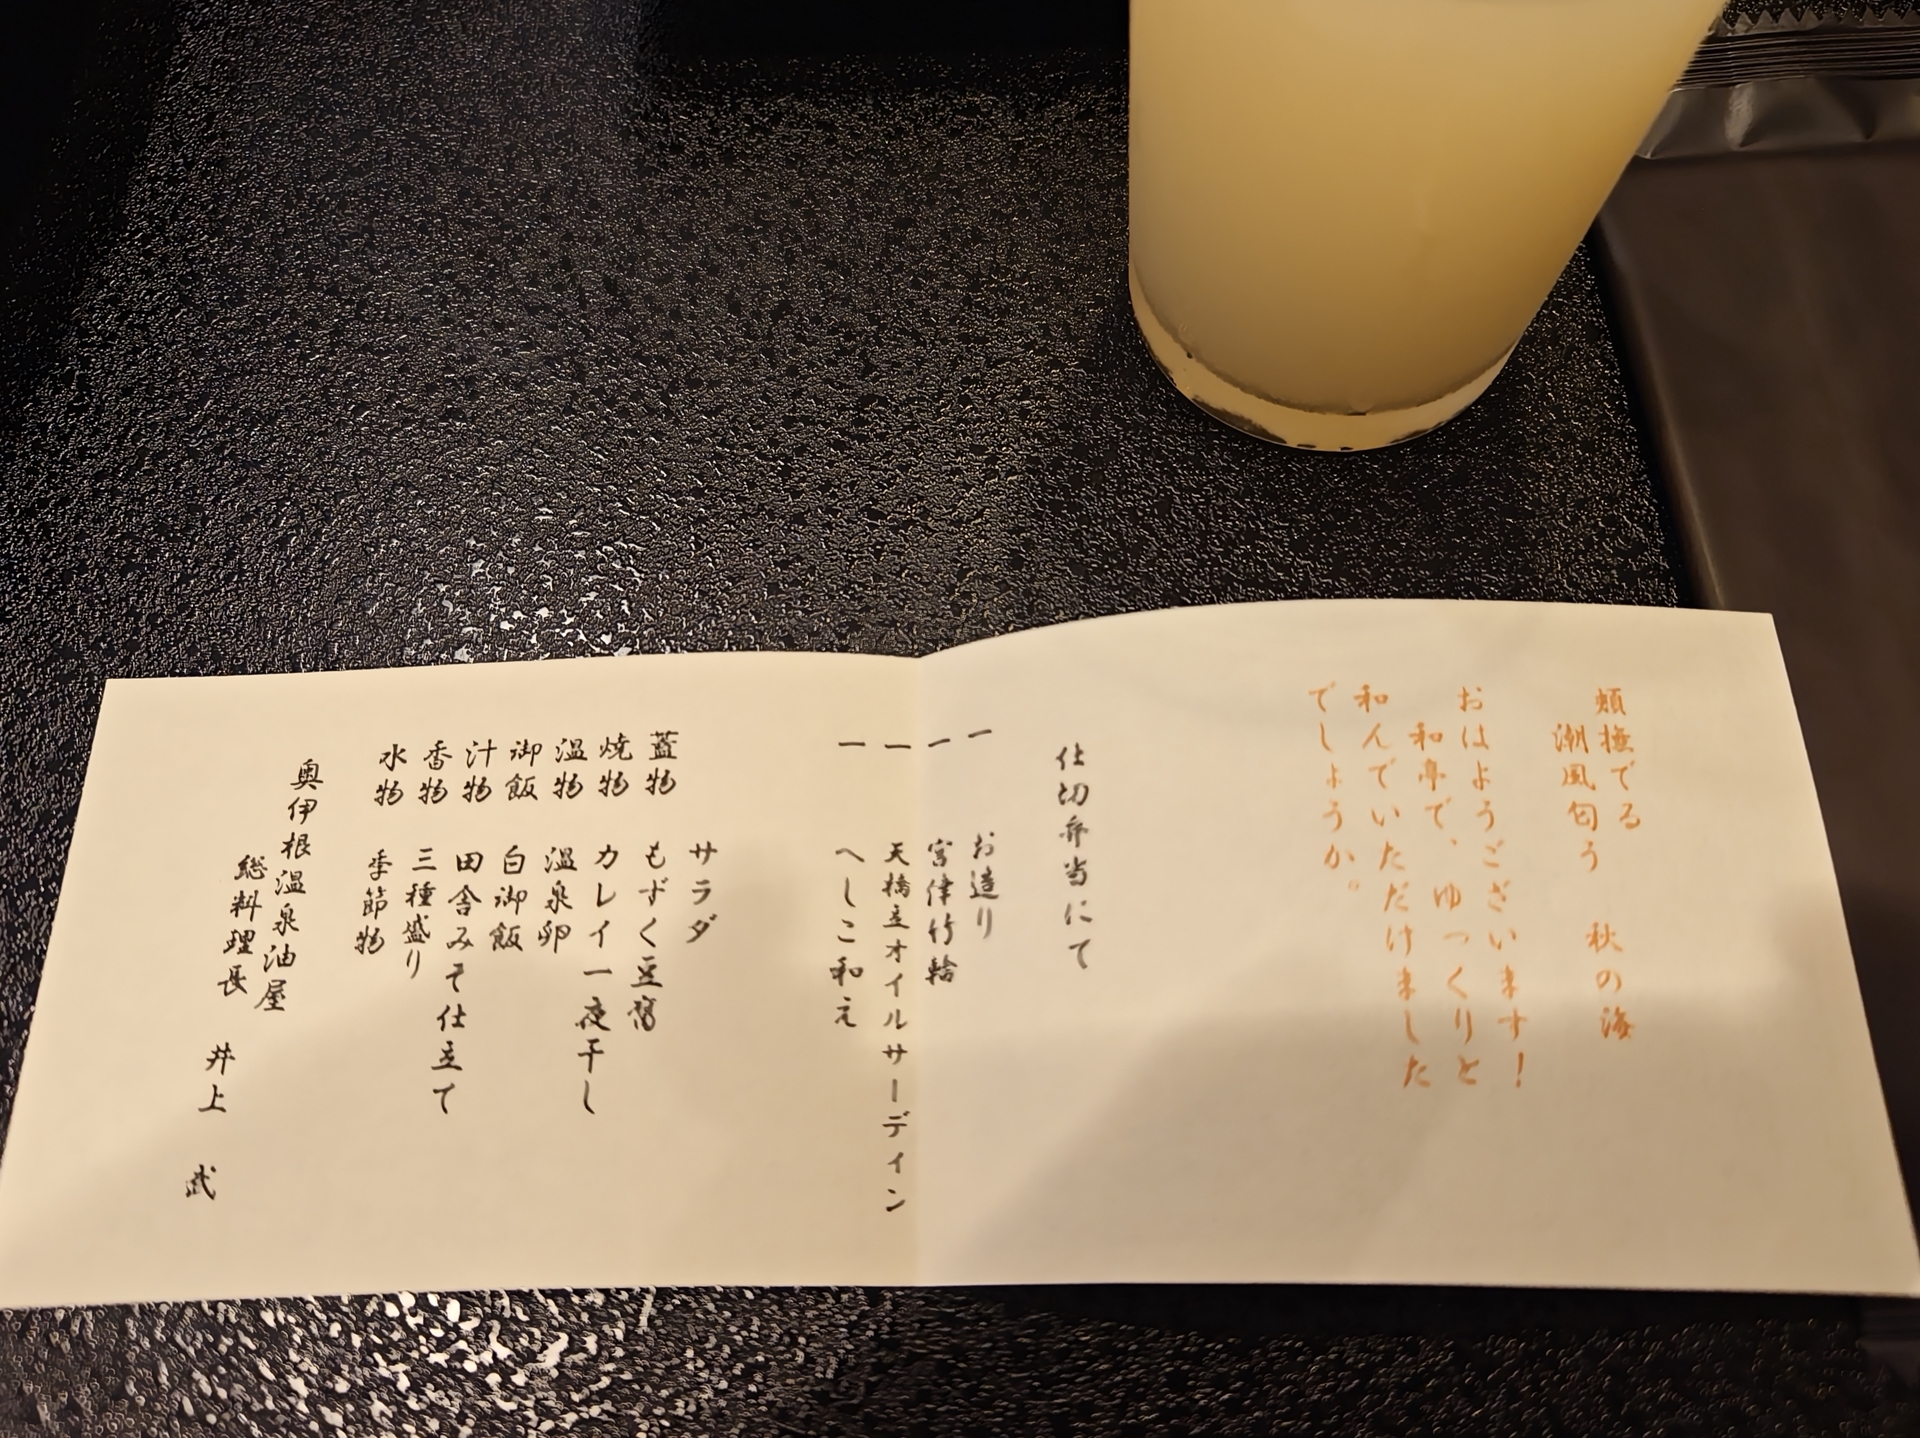 頬撫でる
潮風匂う　秋の海
おはようございます！
和亭で、ゆっくりと
和んでいただけました
でしょうか。
仕切弁当にて
一　お造り
一　宮津竹輪
一　天橋立オイルサーディン
一　へしこ和え
サラダ
蓋物　もずく豆腐
焼物　カレイ一夜干し
温物　温泉卵
御飯　白御飯
汁物　田舎みそ仕立て
香物　三種盛り
水物　季節物
奥伊根温泉油屋
総料理長　井上　武